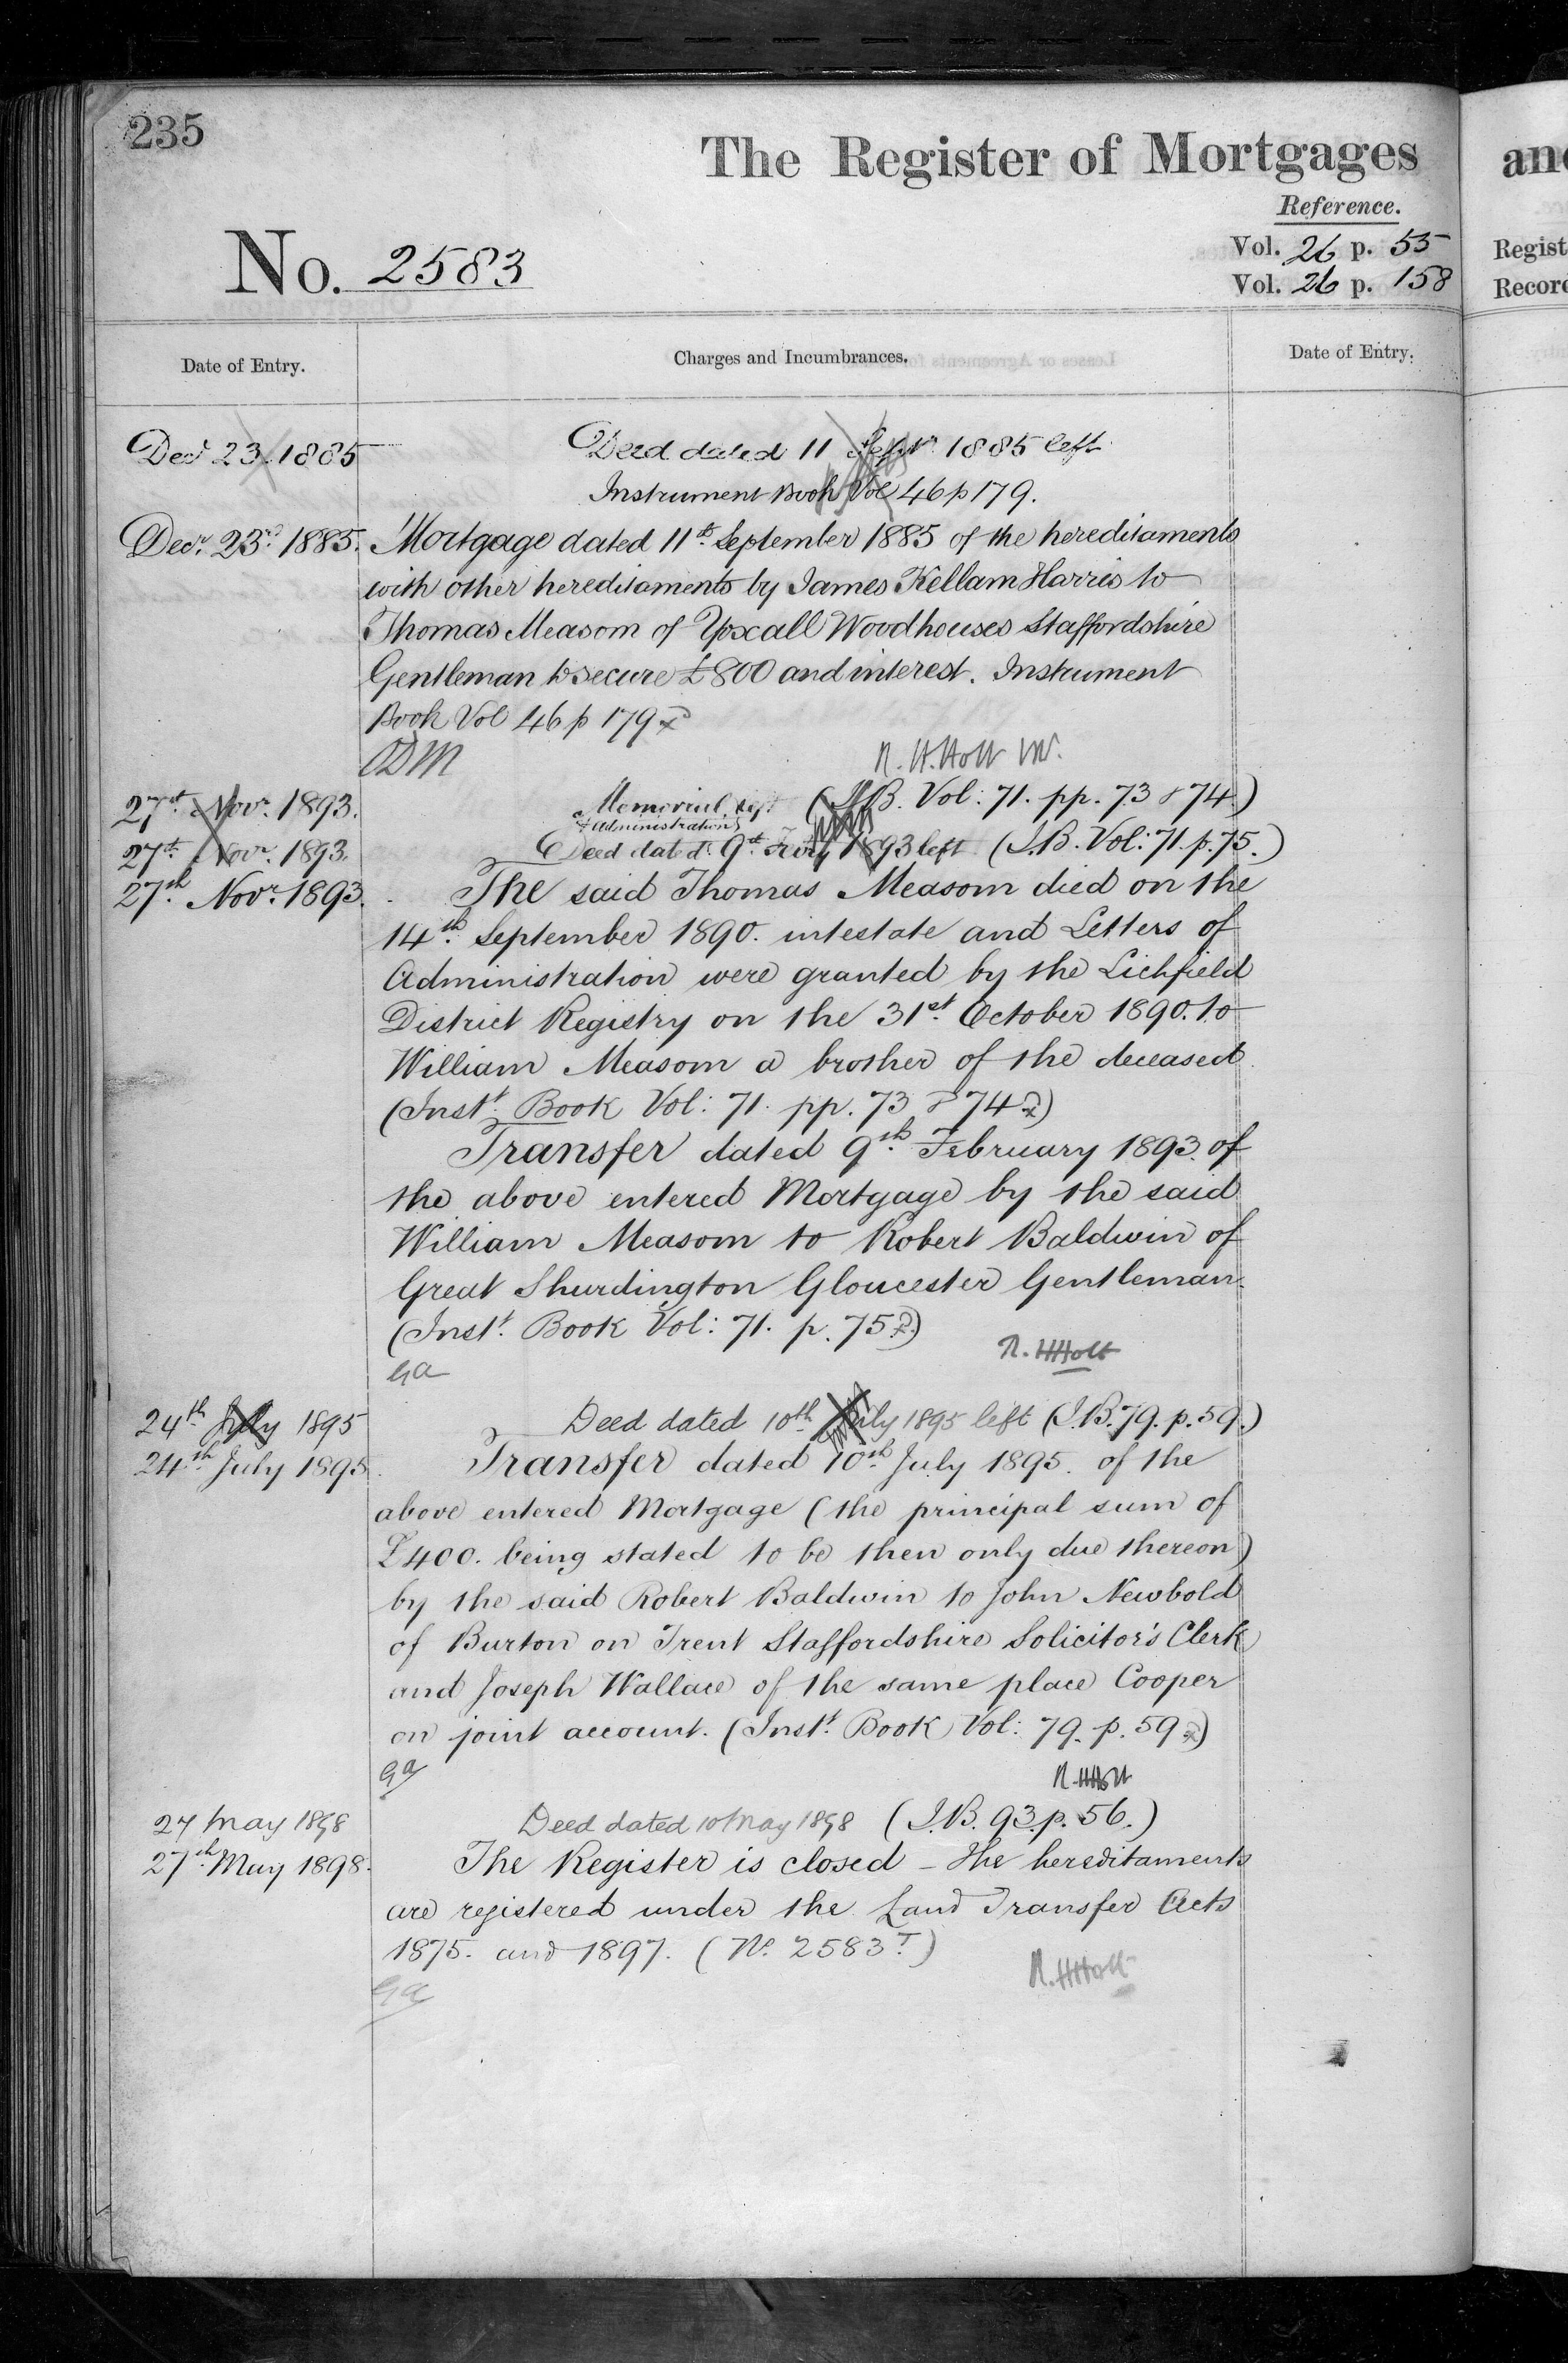 235
The Register of Mortgages
and
Reference.
No. 2583
Vol. 26 p. 55
Vol. 26 p. 158
Regist
Record
Date of Entry.
Charges and Incumbrances.
Date of Entry.
Decr 23 1885
Deed dated 11 Septr 1885 left
Instrument Book Vol 46 p 179.
Decr. 23rd 1885.
Mortgage dated 11th September 1885 of the hereditaments
with other hereditaments by James Kellam Harris to
Thomas Measom of Yoxall Woodhouses Staffordshire
Gentleman to secure £800 and interest. Instrument
Book Vol 46 p 179
ODM
R. H. Holt
27th Novr. 1893.
Memorial left (I.B. Vol: 71. pp. 73 & 74.)
& administration
27th Novr. 1893.
Deed dated 9th Feby 1893 left (I.B. Vol: 71. p. 75.)
27th Novr. 1893.
The said Thomas Measom died on the
14th September 1890. intestate and Letters of
Administration were granted by the Lichfield
District Registry on the 31st October 1890. to
William Measom a brother of the deceased.
(Instt. Book Vol: 71. pp. 73 & 74)
Transfer dated 9th February 1893. of
the above entered Mortgage by the said
William Measom to Robert Baldwin of
Great Shurdington Gloucester Gentleman.
(Instt. Book Vol: 71. p. 75.)
R. HHolt
Ga
24th July 1895
Deed dated 10th July 1895 left (I.B. 79. p. 59.)
24th July 1895.
Transfer dated 10th July 1895. of the
above entered Mortgage (the principal sum of
£400. being stated to be then only due thereon)
by the said Robert Baldwin to John Newbold
of Burton on Trent Staffordshire Solicitor's Clerk
and Joseph Wallace of the same place Cooper
on joint account. (Instt. Book Vol: 79. p. 59)
Ga
R. HHolt
27 May 1898
Deed dated 10 May 1898 (I.B. 93. p. 56.)
27th May 1898.
The Register is closed – The hereditaments
are registered under the Land Transfer Acts
1875. and 1897. (No. 2583T)
R. HHolt
Ga